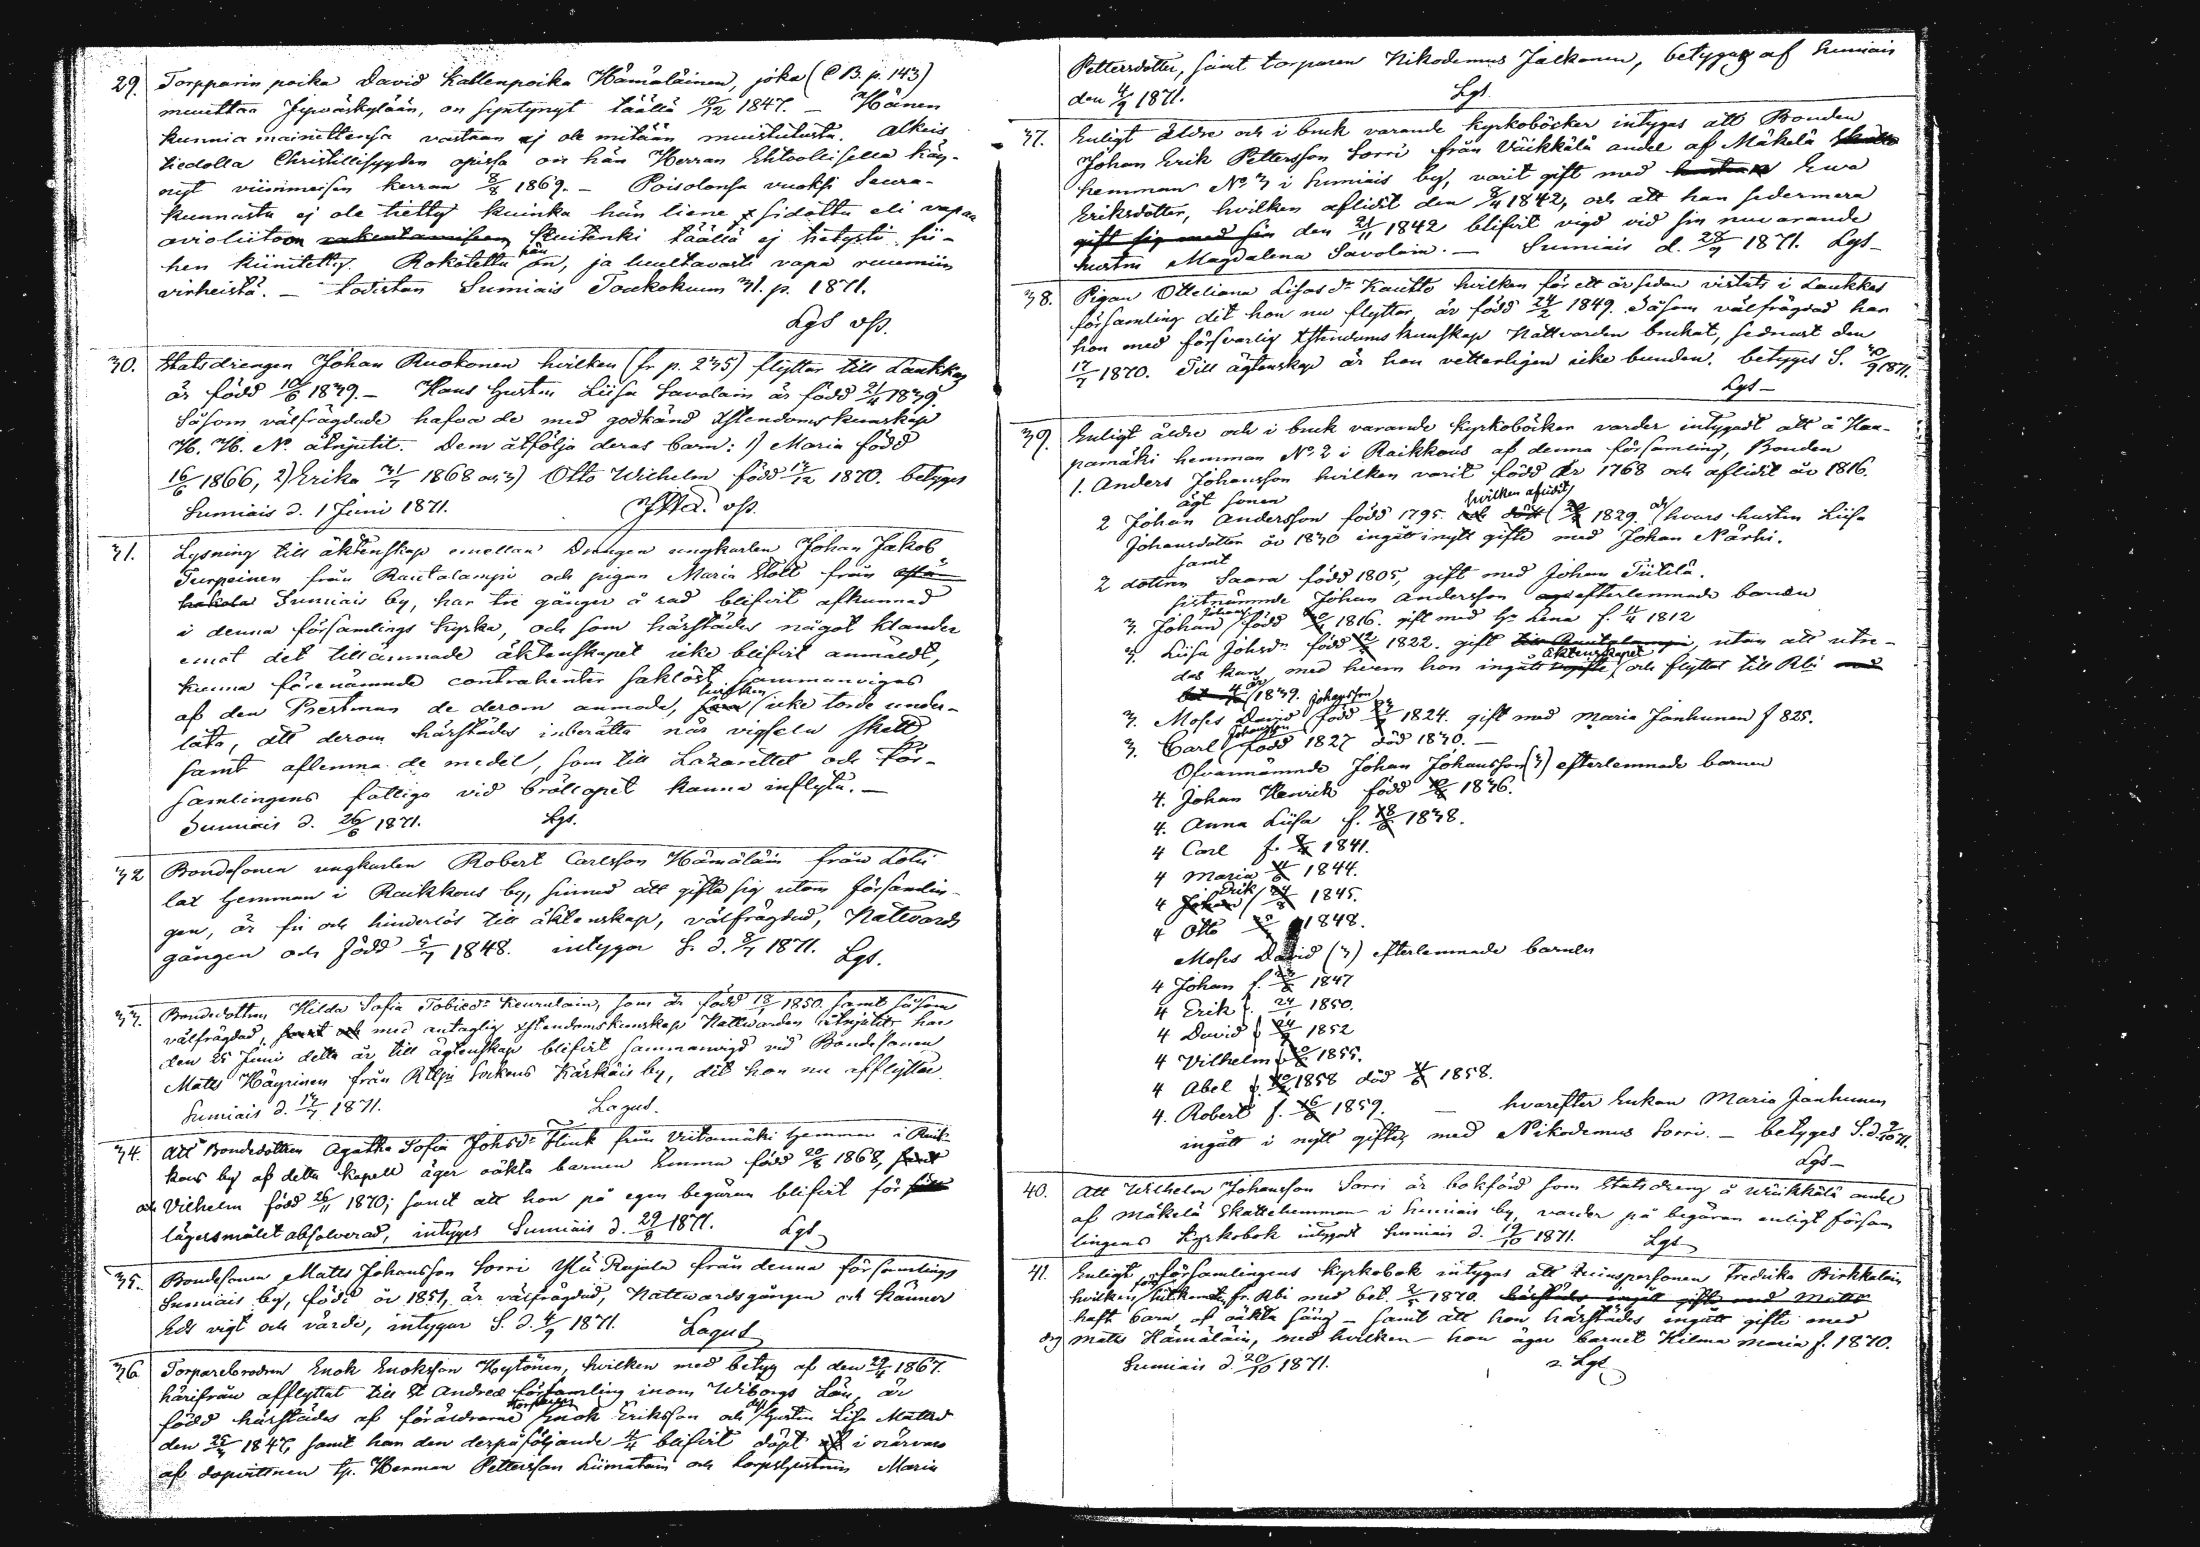 29. Torpparin poika David Kallenpoika Hämäläinen, joka (C B. p. 143)
muuttaa Jyväskylään, on syntynyt täällä 1847. – Hänen
kunniamainettansa vastaan ej ole mitään muistutusta. Alkeis
tiedolla Christillisyyden opissa on hän Herran Ehtoollisella käy-
nyt viimmeisen kerran 8/8 1869. – Poisolonsa vuoksi Seura-
kunnasta ej ole tietty kuinka hän liene sidottu eli vapaa
avioliitoon Kuitenki täällä ej tietysti sii-
hen kiinitetty. Rokotettu hän on, ja luultavasti vapa ruumiin
virheistä. – todistan Sumiais Toukokuun 31. p. 1871.
Lgs vß.
30. Statsdrengen Johan Ruokonen hvilken (fr p. 235) flyttar till Laukkas
är född 10/6 1839. – Hans Hustru Liisa Savolain är född 21/4 1839.
Såsom välfrägdade hafva de med godkänd Xstendomskunskap
H. H. N. åtnjutit. Dem åtfölja deras barn: 1) Maria född
16/6 1866, 2) Erika 31/7 1868 och 3) Otto Wilhelm född 13/12 1870. betyges
Sumiais d. 1 Juni 1871. vß.
31. Lysning till äktenskap emellan Drengen ungkarlen Johan Jakob
Turpeinen från Rautalampi och pigan Maria Stolt från
Sumiais by, har tre gånger å rad blifvit afkunnad
i denna församlings kyrka, och som härstädes något klander
emot det tillämnade äktenskapet icke blifvit anmäldt,
kunna förenämnde contrahenter saklöst sammanvigas
af den Prestman de derom anmode, hvilken icke torde under-
låta, att derom härstädes inberätta när vigseln skett,
samt aflemna de medel, som till Lazarettet och För-
samlingens fattiga vid bröllopet kunna inflyta. –
Sumiais d. 26/6 1871. Lgs.
32 Bondesonen ungkarlen Robert Carlsson Hämäläin från Loti
lax Hemman i Raikkaus by, sinnad att gifta sig utom församlin-
gen, är fri och hinderlös till äktenskap, välfrägdad, Nattvards
gången och född 5/7 1848. intygar S. d. 8/7 1871. Lgs.
33. Bondedottren Hilda Sofia Tobiasdr Keurulain, som är född 18/1 1850. samt såsom
välfrägdad, med antaglig Xstendomskunskap Nattvarden åtnjutit har
den 25 Juni detta år till ägtenskap blifvit sammanvigd vid Bondesonen
Matts Häyrinen från Rtlpi Sockens Kärkkäis by, dit hon nu afflyttar
Sumiais d. 13/7 1871. Lagus.
34. Att Bondedottren Agatha Sofia Johsdr Flink från Viitamäki Hemman i Raik-
kaus by af detta kapell äger oäkta barnen Emma född 20/8 1868,
och Vilhelm född 26/11 1870; samt att hon på egen begäran blifvit för
lägersmålet absolverad, intyges Sumiais d. 29/8 1871. Lgs
35. Bondesonen Matts Johansson Sorri Yli Rajala från denna församlings
Sumiais by, född år 1851, är välfrägdad, Nattvardsgången och känner
Eds vigt och värde, intygar S. d. 4/9 1871. Lagus
36. Torparebrodren Enok Enoksson Hytönen, hvilken med betyg af den 29/4 1867.
härifrån afflyttat till St Andreæ församling inom Wiborgs Län, är
född härstädes af föräldrarne Enok Eriksson och dess Hustru Lisa Mattsd
den 25/3 1847, samt han den derpåföljande 4/4 blifvit döpt i närvaro
af dopvittnen tp. Herman Pettersson Liimatain och torpshustrun Maria
Pettersdotter, samt torparen Nikodemus Jalkanen, betygas af Sumiais
den 4/9 1871. Lgs.
37. Enligt äldre och i bruk varande kyrkoböcker intygas att Bonden
Johan Erik Pettersson Sorri från Viikkälä andel af Mäkelä
hemman No 3 i Sumiais by, varit gift med Ewa
Eriksdotter, hvilken aflidit den 8/4 1842, och att han sedermera
den 21/11 1842 blifvit vigd vid sin nuvarande
hustru Magdalena Savolain. – Sumiais d. 28/9 1871. Lgs –
38. Pigan Otteliana Lisasdr Kautto hvilken för ett år sedan vistats i Laukkas
församling dit hon nu flyttar är född 24/2 1849. Såsom välfrägdad har
hon med försvarlig Xstendoms kunskap Nattvarden brukat, sednast den
17/7 1870. Till ägtenskap är hon vetterligen icke bunden. betyges S. 30/9 1871.
Lgs –
39. Enligt äldre och i bruk varande kyrkoböcker varder intygadt att å Haa-
pamäki hemman No 2 i Raikkaus af denna församling, Bonden
1. Anders Johansson hvilken varit född år 1768 och aflidit år 1816.
ägt sonen
2 Johan Andersson född 1795. hvilken aflidit 1829. och hvars hustru Liisa
Johansdotter år 1830 ingått i nytt gifte med Johan Närhi.
samt
2 dottren Saara född 1805, gift med Johan Tiitilä.
sistnämnde Johan Andersson efterlemnade barnen
3. Johan Johans. född 1816. gift med Hr Lena f. 11/4 1812
3. Liisa Johsdr född 1822. gift utan att utre-
das kan, med hvem hon ingått äktenskapet och flyttat till Rbi
år 1839.
3. Moses David Johansson född 1824. gift med Maria Janhunen f 825.
3. Carl Johansson född 1827 död 1830. –
Ofvannämnde Johan Johansson (3) efterlemnade barnen
4. Johan Henrick född 1836.
4. Anna Liisa f. 1838.
4 Carl f. 1841.
4 Maria 1844.
4 Erik 1845.
4 Otto 1848.
Moses David (3) efterlemnade barnen
4 Johan f. 1847
4 Erik f. 24/1 1850.
4 David f 1852
4 Vilhelm f 1855.
4 Abel f. 1858 död 1858.
4. Robert f. 1859. – hvarefter Enkan Maria Janhunen
ingått i nytt gifte, med Nikodemus Sorri. – betyges S. d. 71.
Lgs –
40. Att Wilhelm Johansson Sorri är bokförd som Statsdreng å Wiikkälä andel
af Mäkelä Skattehemman i Sumiais by, varder på begäran enligt försam
lingens Kyrkobok intygadt Sumiais d. 19/10 1871. Lgs
41. Enligt församlingens kyrkobok intygas att qvinspersonen Fredrika Birkkalain,
hvilken fr. Rbi med bet. 1870.
haft barn af oäkta säng – samt att hon härstädes ingått gifte med
drg Matts Hämäläin, med hvilken hon äger barnet Hilma Maria f. 1870.
Sumiais d 20/10 1871. Lgs